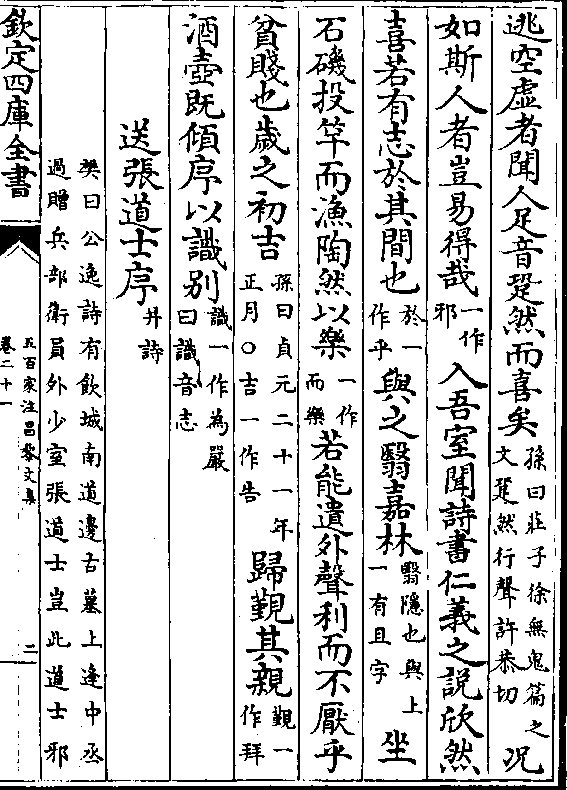 逃空虛者聞人足音跫然而喜矣孫曰莊子徐無鬼篇之文跫然行聲許恭切况
如斯人者豈易得哉一作邪入吾室聞詩書仁義之說欣然
喜若有志於其間也於一作乎與之翳嘉林翳隱也與上一有且字坐
石磯投竿而漁陶然以樂一作而樂若能遺外聲利而不厭乎
貧賤也歲之初吉孫曰貞元二十一年正月○吉一作告歸覲其親覲一作拜
酒壺既傾序以識别識一作為嚴曰識音志
送張道士序并詩
樊曰公逸詩有飲城南道邊古墓上逢中丞
過贈兵部衛員外少室張道士豈此道士邪
欽定四庫全書
五百家注昌黎文集
卷二十一
二